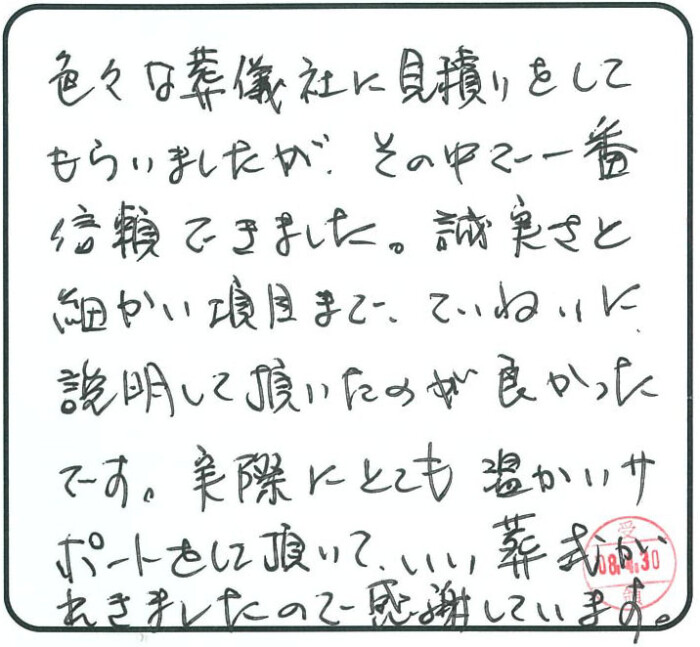 色々な葬儀社に見積りをして
もらいましたが、その中で一番
信頼できました。誠実さと
細かい項目まで、ていねいに
説明して頂いたのが良かった
です。実際にとても温かいサ
ポートをして頂いて、いい葬式が
できましたので感謝しています。
受
08.4.30
領